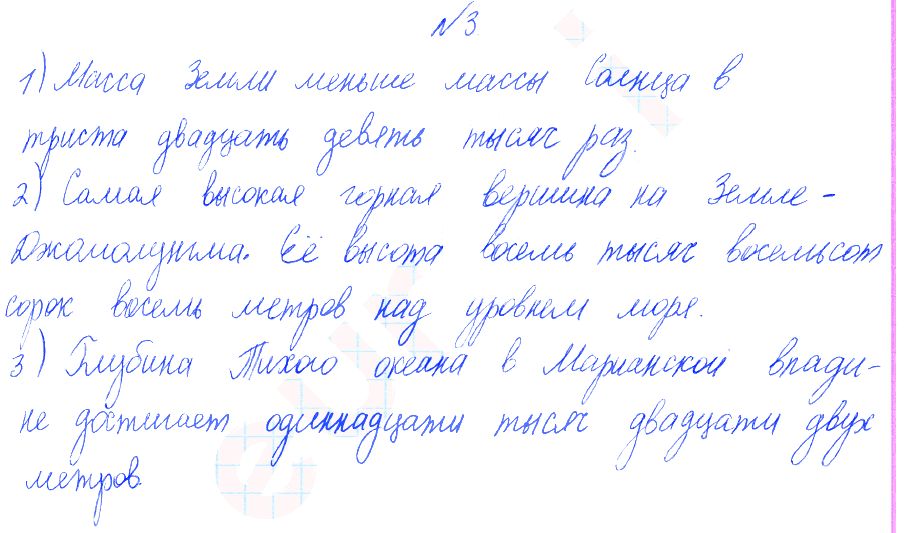 №3.
1) Масса Земли меньше массы Солнца в
триста двадцать девять тысяч раз.
2) Самая высокая горная вершина на Земле -
Джомолунгма. Её высота восемь тысяч восемьсот
сорок восемь метров над уровнем моря.
3) Глубина Тихого океана в Марианской впади-
не достигает одиннадцати тысяч двадцати двух
метров.